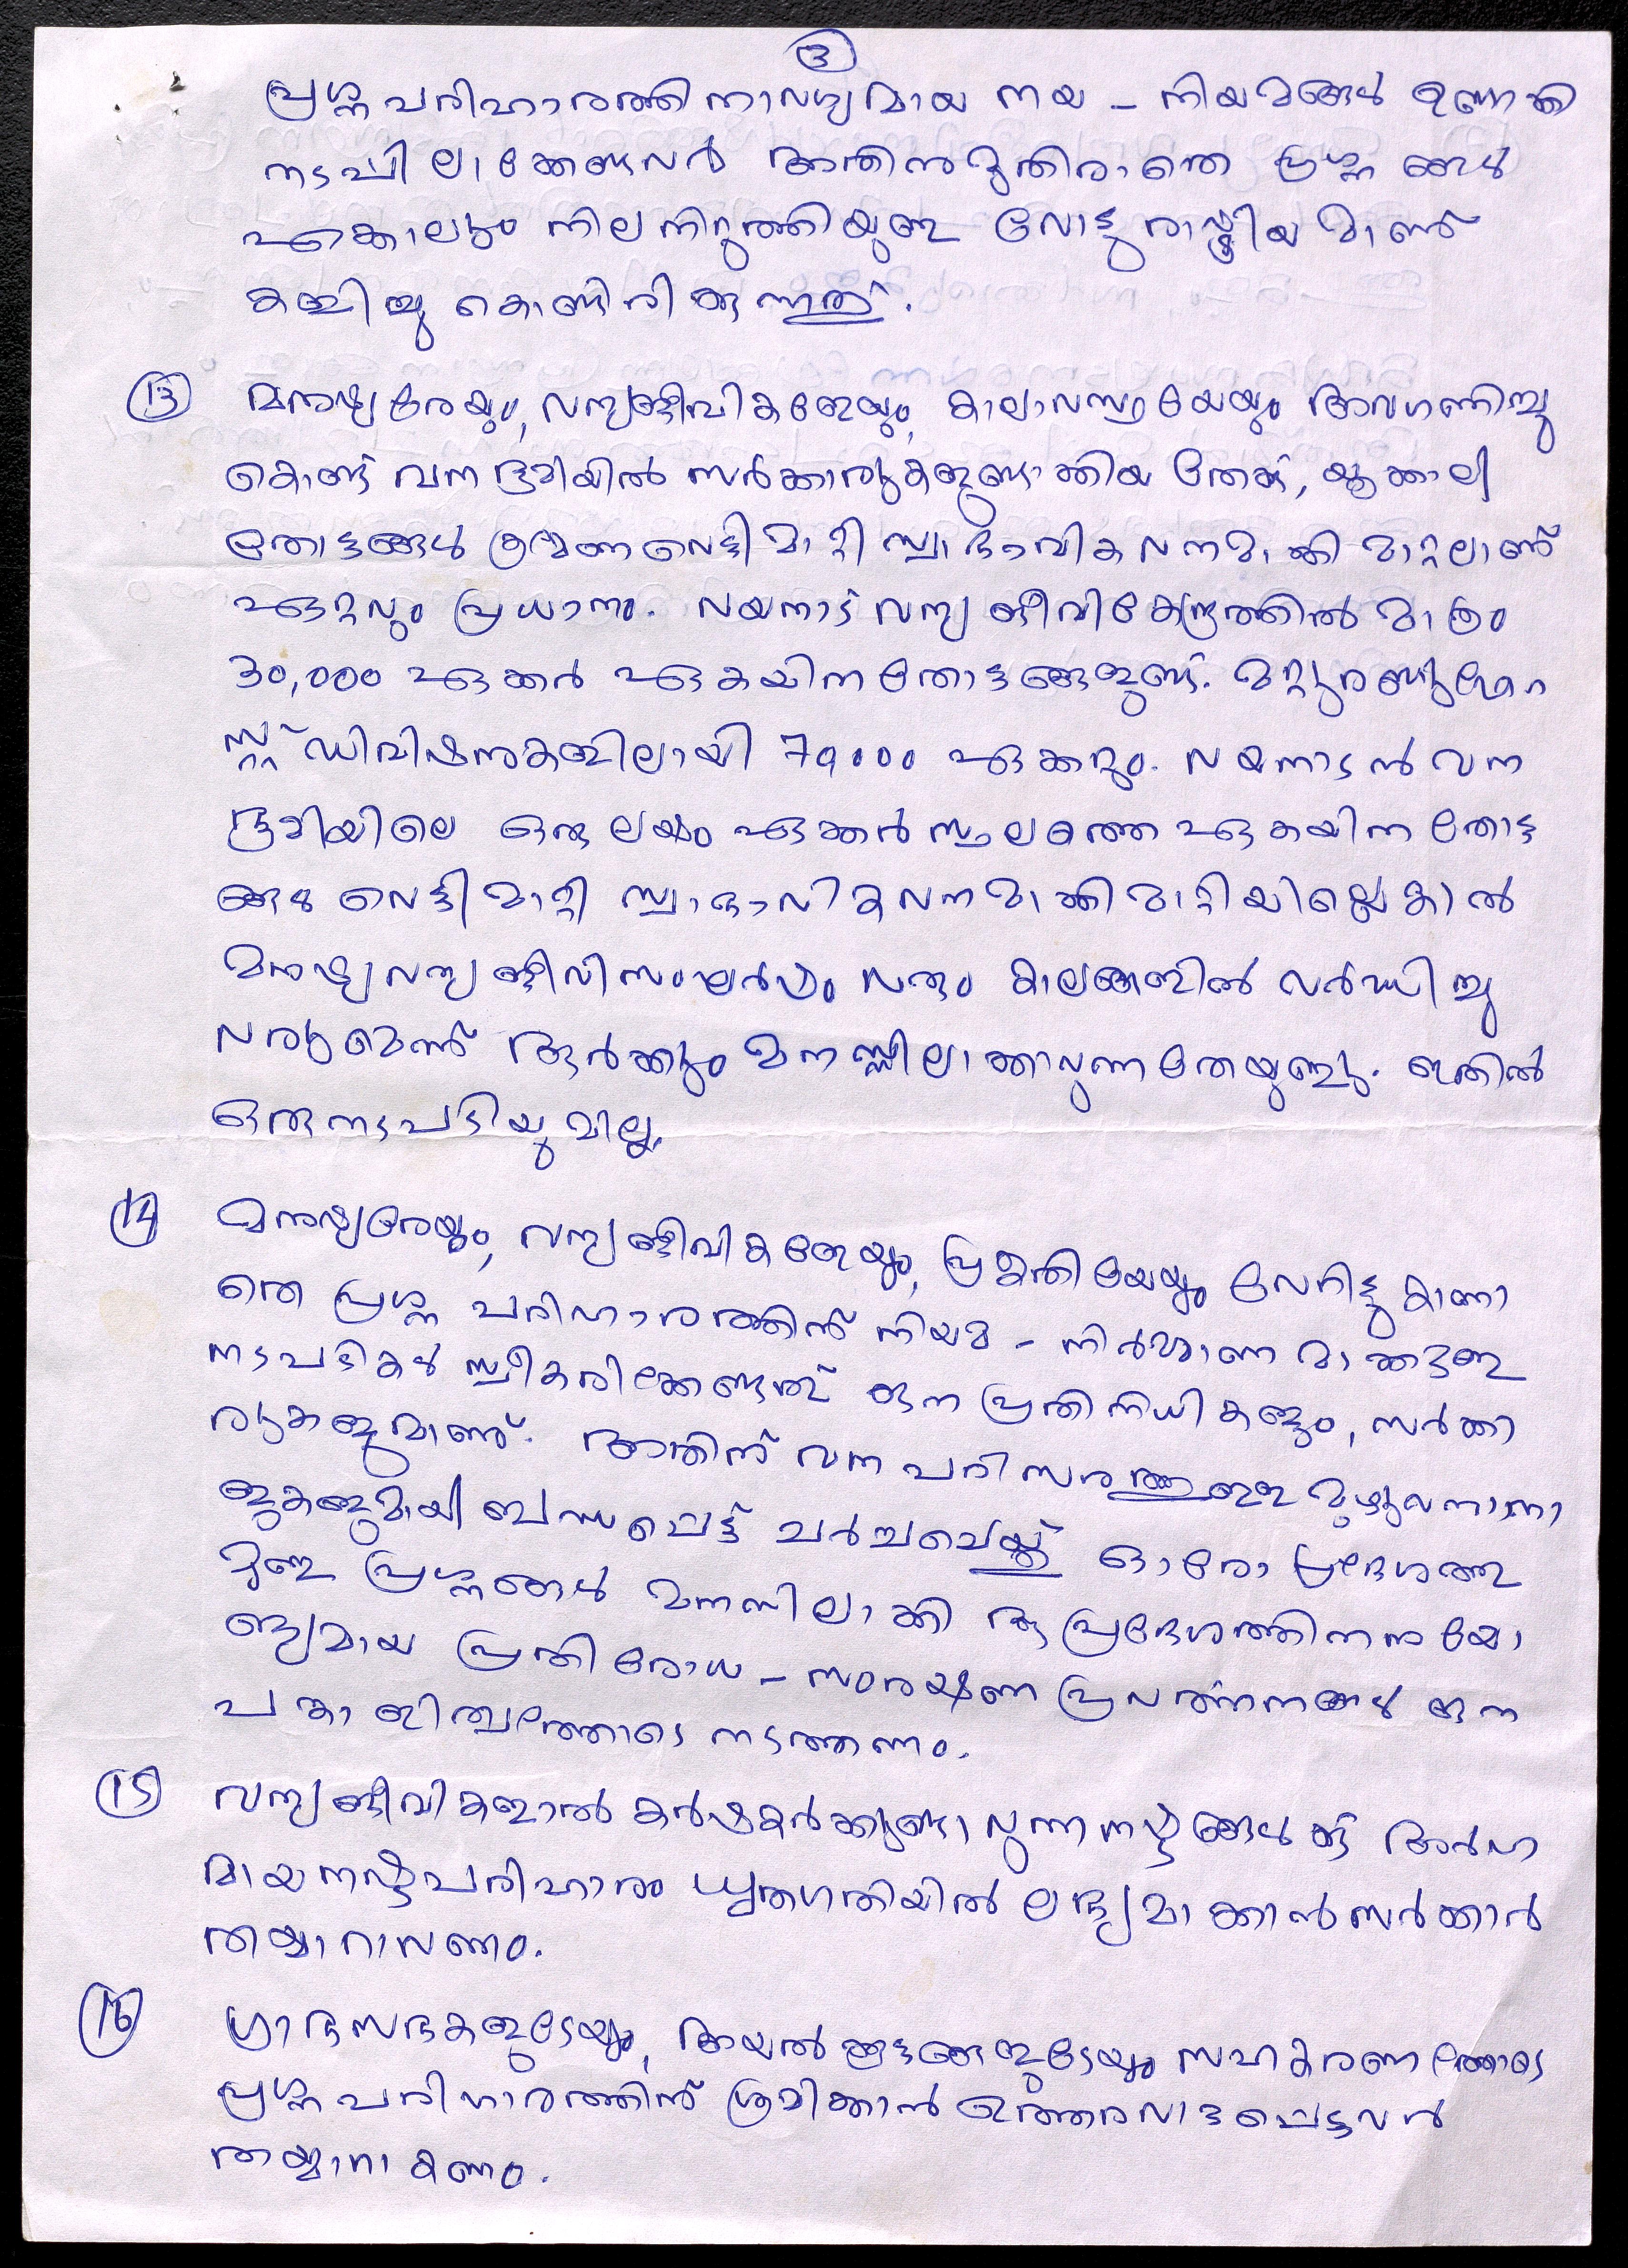 ③
പ്രശ്നപരിഹാരത്തിനാവശ്യമായ നയ - നിയമങ്ങൾ ഉണ്ടാക്കി
നടപ്പിലാക്കേണ്ടവർ അതിനുമുതിരാതെ പ്രശ്നങ്ങൾ
എക്കാലവും നിലനിറുത്തിയുള്ള വോട്ടുരാഷ്ട്രീയമാണ്
കളിയ്ക്കുകൊണ്ടിരിക്കുന്നത്.
⑬ മനുഷ്യരേയും, വന്യജീവികളേയും, കാലാവസ്ഥയേയും അവഗണിച്ചു
കൊണ്ട് വനഭൂമിയിൽ സർക്കാരുകളുണ്ടാക്കിയ തേക്ക്, യൂക്കാലി
തോട്ടങ്ങൾ ക്രമേണ വെട്ടിമാറ്റി സ്വാഭാവികവനമാക്കി മാറ്റലാണ്
ഏറ്റവും പ്രധാനം. വയനാട് വന്യജീവികേന്ദ്രത്തിൽ മാത്രം
30,000 ഏക്കർ ഏകയിനതോട്ടങ്ങളുണ്ട്. മറ്റുരണ്ടുഫോറ
സ്റ്റ് ഡിവിഷനുകളിലായി 70,000 ഏക്കറും. വയനാടൻ വന
ഭൂമിയിലെ ഒരു ലക്ഷം ഏക്കർ സ്ഥലത്തെ ഏകയിന തോട്ട
ങ്ങൾ വെട്ടിമാറ്റി സ്വാഭാവികവനമാക്കിമാറ്റിയില്ലെങ്കിൽ
മനുഷ്യവന്യജീവിസംഘർഷം വരും കാലങ്ങളിൽ വർദ്ധിച്ചു
വരുമെന്ന് ആർക്കും മനസ്സിലാക്കാവുന്നതേയുള്ളു. ഇതിൽ
ഒരുനടപടിയുമില്ല.
⑭ മനുഷ്യരേയും, വന്യജീവികളേയും, പ്രകൃതിയേയും വേറിട്ടുകാണാ
തെ പ്രശ്ന പരിഹാരത്തിന് നിയമ - നിർമ്മാണ മാക്കട്ടെ
നടപടികൾ സ്വീകരിക്കേണ്ടത് ജനപ്രതിനിധികളും, സർക്കാ
രുകളുമാണ്. അതിന് വന പരിസരത്തുള്ള മുഴുവനാ
ളുകളുമായി ബന്ധപ്പെട്ട് ചർച്ചചെയ്ത് ഓരോ പ്രദേശത്തു
മുള്ള പ്രശ്നങ്ങൾ മനസിലാക്കി ആ പ്രദേശത്തിനനുയോ
ജ്യമായ പ്രതിരോധ - സംരക്ഷണ പ്രവർത്തനങ്ങൾ ജന
പങ്കാളിത്വത്തോടെ നടത്തണം.
⑮ വന്യജീവികളാൽ കർഷകർക്കുണ്ടാവുന്നനഷ്ടങ്ങൾക്ക് അർഹ
മായനഷ്ടപരിഹാരം ധൃതഗതിയിൽ ലഭ്യമാക്കാൻസർക്കാർ
തയ്യാറാവണം.
⑯ ഗ്രാമസഭകളുടേയും, അയൽക്കൂട്ടങ്ങളുടേയും സഹകരണത്തോടെ
പ്രശ്നപരിഹാരത്തിന് ശ്രമിക്കാൻ ഉത്തരവാദപ്പെട്ടവർ
തയ്യാറാകണം.